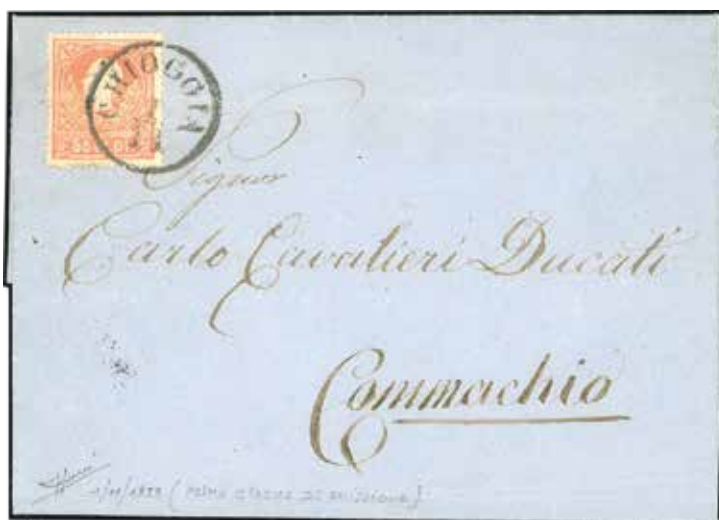 CHIOGGIA
Signor
Carlo Cavalieri Ducati
Commachio
1/11/1858 (PRIMO GIORNO DI EMISSIONE)